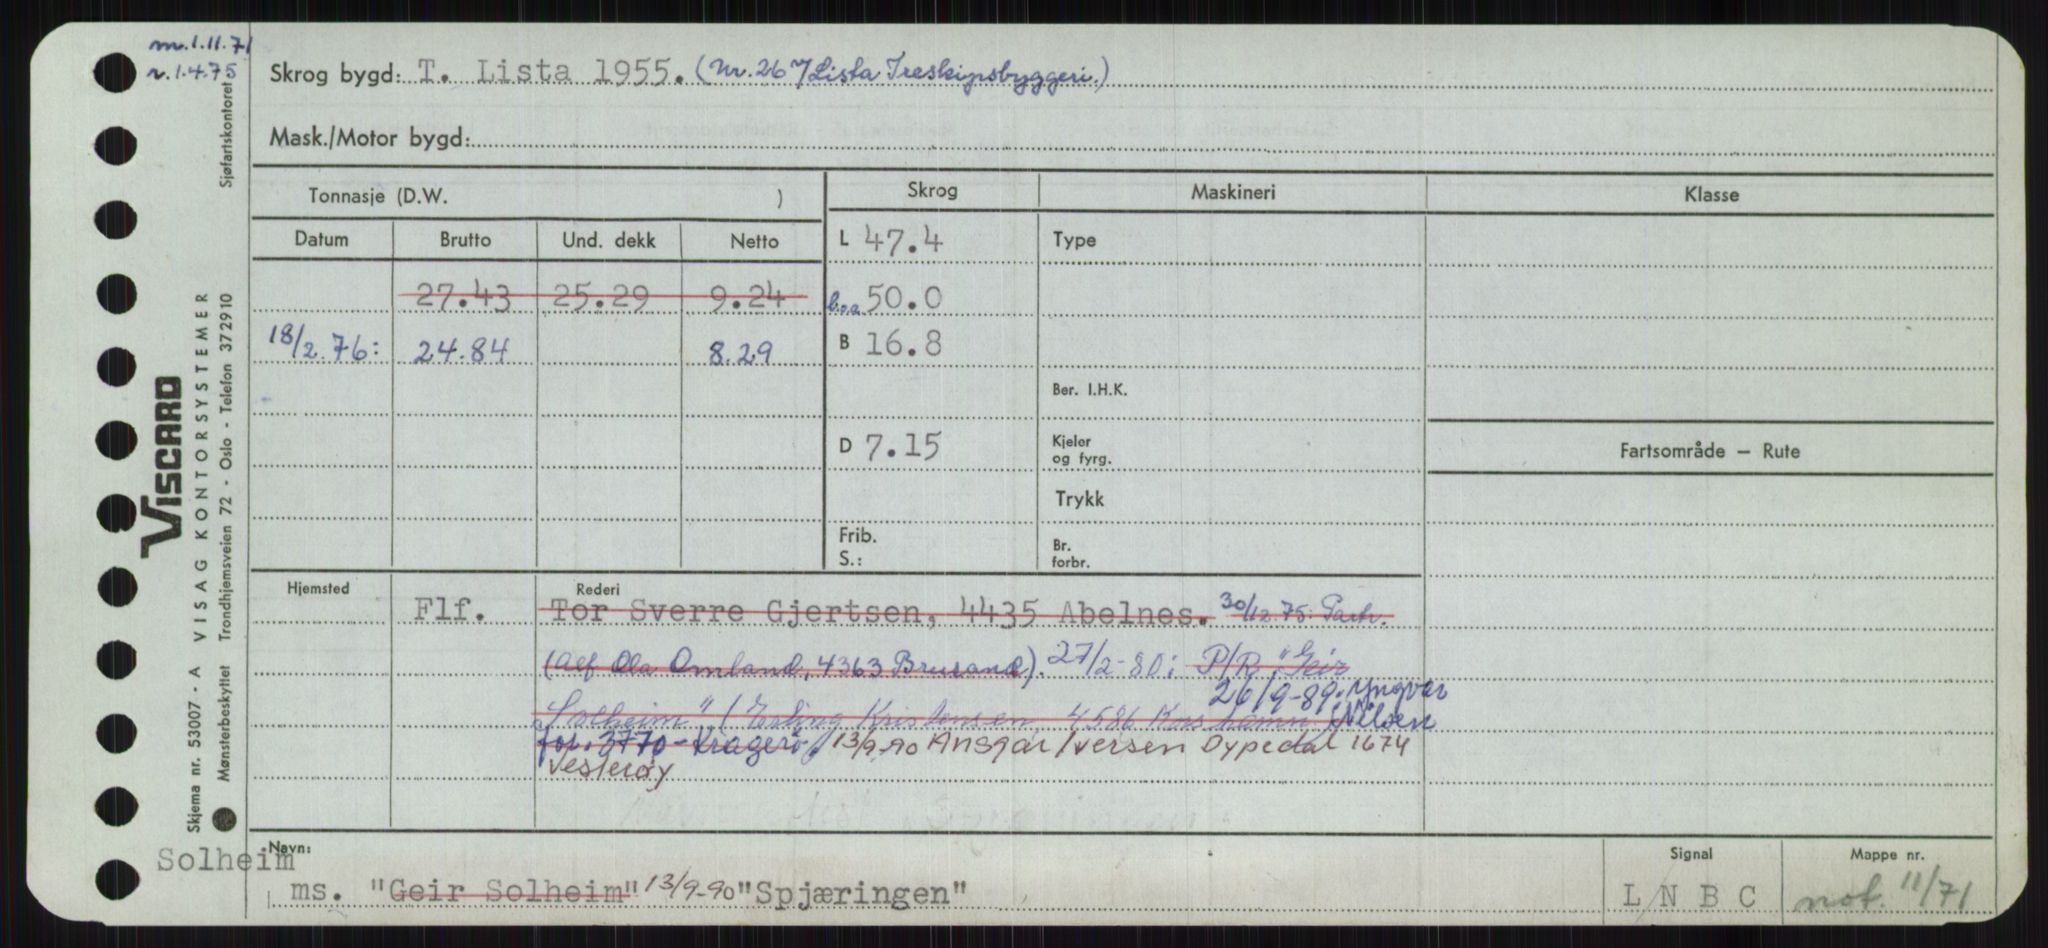 m. 1.11.71
r. 1.4.75
Skrog bygd: T. Lista 1955. (Nr. 26 Lista Treskipsbyggeri.)
Mask./Motor bygd:
Tonnasje (D.W. )
Skrog
Maskineri
Klasse
Datum Brutto Und. dekk Netto
L 47.4
Type
27.43 25.29 9.24
b.o.a 50.0
18/2.76: 24.84 8.29
B 16.8
Ber. I.H.K.
D 7.15
Kjeler
og fyrg.
Fartsområde — Rute
Trykk
Frib.
S.:
Br.
forbr.
Hjemsted
Rederi
Flf. Tor Sverre Gjertsen, 4435 Abelnes. 30/12.75: Partr.
(Alf Ola Omland, 4363 Brusand). 27/2-80: P/R "Geir
26/9-89. Yngvar
Solheim" / Erling Kristensen 4586 Korshamn Nilsen
3770 - Kragerø / 13/9-90 Ansgar Iversen Dypedal 1674
Vesterøy
Navn:
Solheim
ms. "Geir Solheim" 13/9-90 "Spjæringen"
Signal
L N B C
Mappe nr.
not. 11/71
Sjøfartskontoret
VISCARD
VISAG KONTORSYSTEMER
Trondhjemsveien 72 - Oslo - Telefon 372910
Skjema nr. 53007 - A
Mønsterbeskyttet